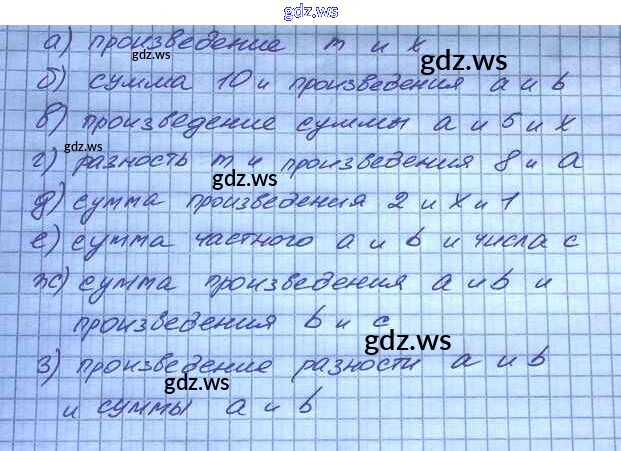 gdz.ws
а) произведение m и x
gdz.ws gdz.ws
б) сумма 10 и произведения a и b
в) произведение суммы a и 5 и x
gdz.ws gdz.ws
г) разность m и произведения 8 и a
gdz.ws
д) сумма произведения 2 и x и 1
е) сумма частного a и b и числа c
ж) сумма произведения a и b и
произведения b и c
gdz.ws
з) произведение разности a и b
gdz.ws
и суммы a и b